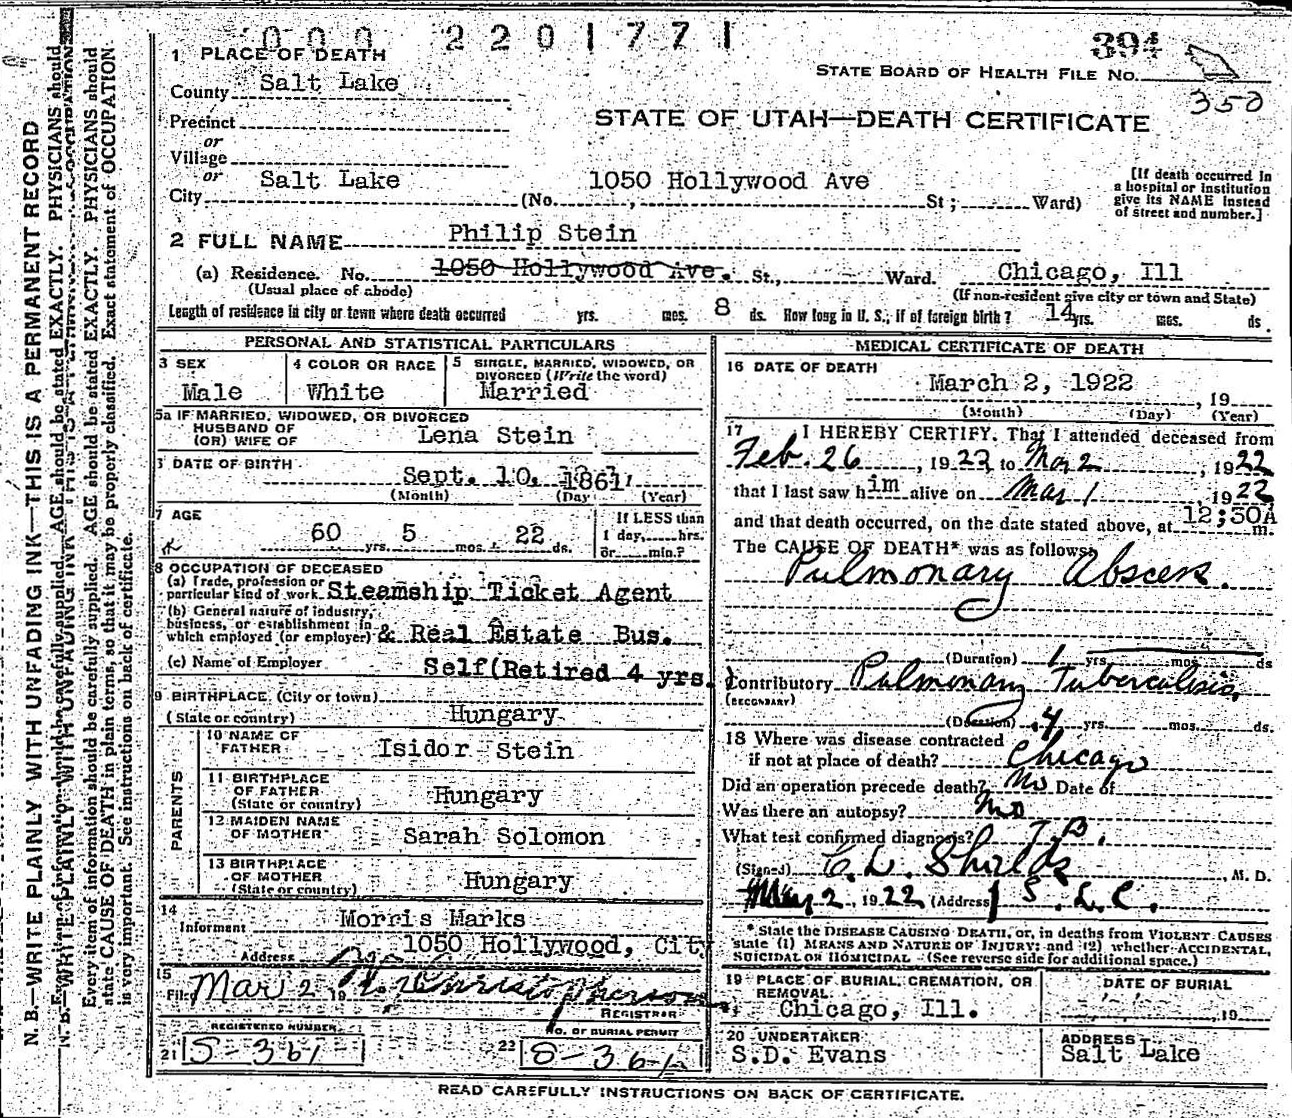 000 2201771
394
STATE BOARD OF HEALTH FILE No.
350
1 PLACE OF DEATH
County Salt Lake
Precinct
or
Village
or
City Salt Lake (No. 1050 Hollywood Ave St; Ward)
STATE OF UTAH—DEATH CERTIFICATE
[If death occurred in
a hospital or institution
give its NAME instead
of street and number.]
2 FULL NAME Philip Stein
(a) Residence. No. 1050 Hollywood Ave. St., Ward. Chicago, Ill
(Usual place of abode) (If non-resident give city or town and State)
Length of residence in city or town where death occurred yrs. mos. 8 ds. How long in U. S., if of foreign birth? 14 yrs. mos. ds.
PERSONAL AND STATISTICAL PARTICULARS
3 SEX
Male
4 COLOR OR RACE
White
5 SINGLE, MARRIED, WIDOWED, OR
DIVORCED (Write the word)
Married
5a IF MARRIED, WIDOWED, OR DIVORCED
HUSBAND OF
(OR) WIFE OF Lena Stein
DATE OF BIRTH
Sept. 10, 1861
(Month) (Day) (Year)
7 AGE
60 yrs. 5 mos. 22 ds.
If LESS than
1 day, hrs.
or min.?
8 OCCUPATION OF DECEASED
(a) Trade, profession or
particular kind of work Steamship Ticket Agent
(b) General nature of industry,
business, or establishment in
which employed (or employer) & Real Estate Bus.
(c) Name of Employer Self (Retired 4 yrs.)
9 BIRTHPLACE (City or town)
(State or country) Hungary
PARENTS
10 NAME OF
FATHER Isidor Stein
11 BIRTHPLACE
OF FATHER
(State or country) Hungary
12 MAIDEN NAME
OF MOTHER Sarah Solomon
13 BIRTHPLACE
OF MOTHER
(State or country) Hungary
14
Informant Morris Marks
Address 1050 Hollywood, City
15
Filed Mar 2 19 Christopherson
REGISTRAR
REGISTERED NUMBER
21 S-361
No. OF BURIAL PERMIT
22 S-361
MEDICAL CERTIFICATE OF DEATH
16 DATE OF DEATH
March 2, 1922, 19
(Month) (Day) (Year)
17 I HEREBY CERTIFY, That I attended deceased from
Feb. 26, 1922, to Mar 2, 1922
that I last saw him alive on Mar 1, 1922
and that death occurred, on the date stated above, at 12;30A m.
The CAUSE OF DEATH* was as follows:
Pulmonary Abscess.
(Duration) 1 yrs. mos. ds
Contributory Pulmonary Tuberculosis.
(SECONDARY)
(Duration) 4 yrs. mos. ds.
18 Where was disease contracted
if not at place of death? Chicago
Did an operation precede death? No Date of
Was there an autopsy? No
What test confirmed diagnosis? T.B.
(Signed) C. L. Shields, M. D.
Mar 2, 1922 (Address) S. L. C.
* State the DISEASE CAUSING DEATH, or, in deaths from VIOLENT CAUSES
state (1) MEANS AND NATURE OF INJURY; and (2) whether ACCIDENTAL,
SUICIDAL OR HOMICIDAL (See reverse side for additional space.)
19 PLACE OF BURIAL, CREMATION, OR
REMOVAL
Chicago, Ill.
DATE OF BURIAL
19
20 UNDERTAKER
S.D. Evans
ADDRESS
Salt Lake
READ CAREFULLY INSTRUCTIONS ON BACK OF CERTIFICATE.
N. B.—WRITE PLAINLY WITH UNFADING INK—THIS IS A PERMANENT RECORD
Every item of information should be carefully supplied. AGE should be stated EXACTLY. PHYSICIANS should
state CAUSE OF DEATH in plain terms, so that it may be properly classified. Exact statement of OCCUPATION
is very important. See instructions on back of certificate.